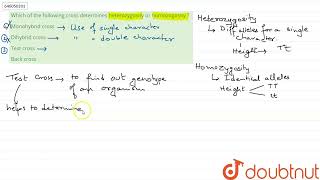 648059201
Which of the following cross determines heterozygosity or homozygosity?
Monohybrid cross → Use of single character
Dihybrid cross → " " double character
Test cross →
Back cross
Heterozygosity
↳ Diff alleles for a single character
Height → Tt
Homozygosity
↳ Identical alleles
Height TT
tt
Test cross → to find out genotype
of an organism
helps to determine
doubtnut